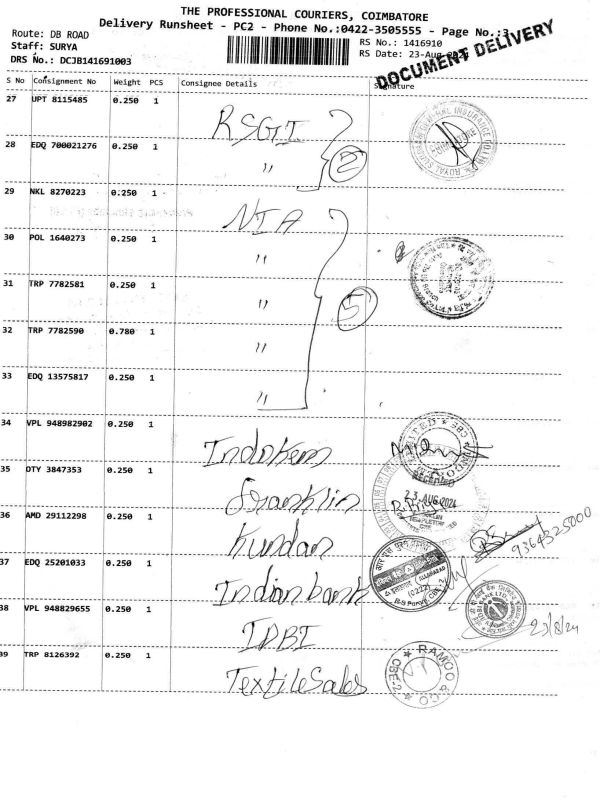 THE PROFESSIONAL COURIERS, COIMBATORE
Delivery Runsheet - PC2 - Phone No.:0422-3505555 - Page No.:3
Route: DB ROAD
RS No.: 1416910
Staff: SURYA
RS Date: 23-Aug-2024
DRS No.: DCJB141691003
DOCUMENT DELIVERY
S No Consignment No Weight PCS Consignee Details Signature
27 UPT 8115485 0.250 1 RSGI
28 EDQ 700021276 0.250 1 " 2
29 NKL 8270223 0.250 1 NIA
30 POL 1640273 0.250 1 "
31 TRP 7782581 0.250 1 " 5
32 TRP 7782590 0.780 1 "
33 EDQ 13575817 0.250 1 "
34 VPL 948982902 0.250 1 Indokem
RECEIVED
35 DTY 3847353 0.250 1 Franklin
23 AUG 2024
36 AMD 29112298 0.250 1 Kundan
9364325000
37 EDQ 25201033 0.250 1 Indian bank
ALLAHABAD
38 VPL 948829655 0.250 1 IDBI
23/8/24
39 TRP 8126392 0.250 1 Textile Sales
RAMOO & CO
CBE-2